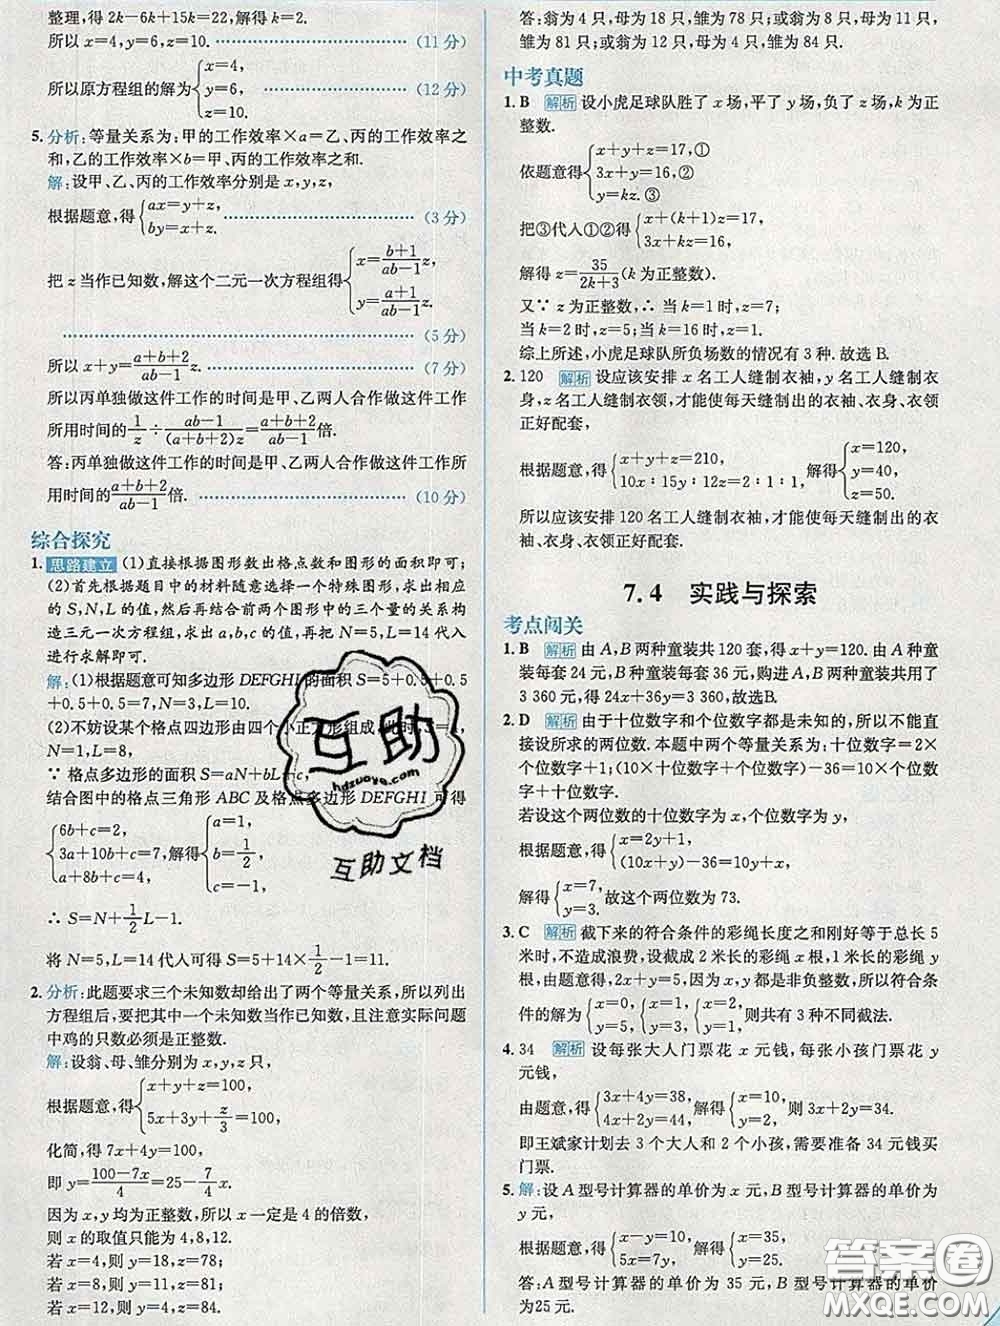 整理,得 2k-6k+15k=22,解得 k=2.
所以 x=4,y=6,z=10. (11 分)
所以原方程组的解为{x=4, y=6, z=10. (12 分)
5. 分析:等量关系为:甲的工作效率×a=乙、丙的工作效率之
和,乙的工作效率×b=甲、丙的工作效率之和.
解:设甲、乙、丙的工作效率分别是 x,y,z,
根据题意,得{ax=y+z, by=x+z. (3 分)
把 z 当作已知数,解这个二元一次方程组得{x=(b+1)/(ab-1)z, y=(a+1)/(ab-1)z.
(5 分)
所以 x+y=(a+b+2)/(ab-1)z. (7 分)
所以丙单独做这件工作的时间是甲、乙两人合作做这件工作
所用时间的1/z÷(ab-1)/((a+b+2)z)=(a+b+2)/(ab-1)倍.
答:丙单独做这件工作的时间是甲、乙两人合作做这件工作所
用时间的(a+b+2)/(ab-1)倍. (10 分)
综合探究
1. 思路建立 (1)直接根据图形数出格点数和图形的面积即可;
(2)首先根据题目中的材料随意选择一个特殊图形,求出相应
的 S,N,L 的值,然后再结合前两个图形中的三个量的关系构
造三元一次方程组,求出 a,b,c 的值,再把 N=5,L=14 代入
进行求解即可.
解:(1)根据题意可知多边形 DEFGHI 的面积 S=5+0.5+0.5
+0.5+0.5=7,N=3,L=10.
(2)不妨设某个格点四边形由四个小正方形组成,此时,S=4,
N=1,L=8,
∵ 格点多边形的面积 S=aN+bL+c,
结合图中的格点三角形 ABC 及格点多边形 DEFGHI 可得
{6b+c=2, 3a+10b+c=7, a+8b+c=4, 解得{a=1, b=1/2, c=-1.
∴ S=N+1/2L-1.
将 N=5,L=14 代人可得 S=5+14×1/2-1=11.
2. 分析:此题要求三个未知数却给出了两个等量关系,所以列出
方程组后,要把其中一个未知数当作已知数,且注意实际问题
中鸡的只数必须是正整数.
解:设翁、母、雏分别为 x,y,z 只,
根据题意,得{x+y+z=100, 5x+3y+z/3=100,
化简,得 7x+4y=100,
即 y=(100-7x)/4=25-7/4x.
因为 x,y 均为正整数,所以 x 一定是 4 的倍数,
则 x 的取值只能为 4,8,12.
若 x=4,则 y=18,z=78;
若 x=8,则 y=11,z=81;
若 x=12,则 y=4,z=84.
答:翁为 4 只,母为 18 只,雏为 78 只;或翁为 8 只,母为 11 只,
雏为 81 只;或翁为 12 只,母为 4 只,雏为 84 只.
中考真题
1. B 解析 设小虎足球队胜了 x 场,平了 y 场,负了 z 场,k 为正
整数.
依题意得{x+y+z=17,① 3x+y=16,② y=kz.③
把③代入①②得{x+(k+1)z=17, 3x+kz=16,
解得 z=35/(2k+3)(k 为正整数).
又∵ z 为正整数,∴ 当 k=1 时,z=7;
当 k=2 时,z=5;当 k=16 时,z=1.
综上所述,小虎足球队所负场数的情况有 3 种. 故选 B.
2. 120 解析 设应该安排 x 名工人缝制衣袖,y 名工人缝制衣
身,z 名工人缝制衣领,才能使每天缝制出的衣袖、衣身、衣领
正好配套,
根据题意,得{x+y+z=210, 10x∶15y∶12z=2∶1∶1, 解得{x=120, y=40, z=50.
所以应该安排 120 名工人缝制衣袖,才能使每天缝制出的衣袖、衣身、衣领正好配套.
7.4 实践与探索
考点闯关
1. B 解析 由 A,B 两种童装共 120 套,得 x+y=120. 由 A 种童
装每套 24 元,B 种童装每套 36 元,购进 A,B 两种童装共用了
3 360 元,得 24x+36y=3 360,故选 B.
2. D 解析 由于十位数字和个位数字都是未知的,所以不能直
接设所求的两位数. 本题中两个等量关系为:十位数字=2×
个位数字+1;(10×十位数字+个位数字)-36=10×个位数
字+十位数字.
若设这个两位数的十位数字为 x,个位数字为 y,
根据题意,得{x=2y+1, (10x+y)-36=10y+x.
解得{x=7, y=3. 故这个两位数为 73.
3. C 解析 截下来的符合条件的彩绳长度之和刚好等于总长 5
米时,不造成浪费,设截成 2 米长的彩绳 x 根,1 米长的彩绳 y
根,由题意得,2x+y=5,因为 x,y 都是非负整数,所以符合条
件的解为{x=0, y=5, {x=1, y=3, {x=2, y=1, 则共有 3 种不同截法.
4. 34 解析 设每张大人门票花 x 元钱,每张小孩门票花 y
元钱,
由题意,得{3x+4y=38, 4x+2y=44, 解得{x=10, y=2, 则 3x+2y=34.
即王斌家计划去 3 个大人和 2 个小孩,需要准备 34 元钱买
门票.
5. 解:设 A 型号计算器的单价为 x 元,B 型号计算器的单价为
y 元,
根据题意,得{x-y=10, 5x=7y, 解得{x=35, y=25.
答:A 型号计算器的单价为 35 元,B 型号计算器的单价
为25 元.
互助
hdzuoye.com
互助文档
答案圈
MXQE.COM